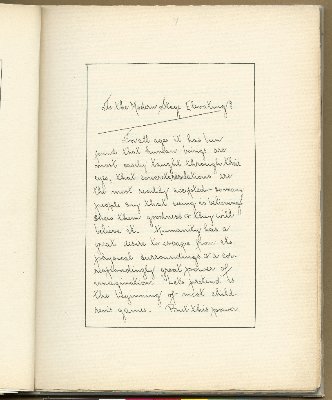 Is the Modern Stage Elevating?
For all ages it has been
found that human beings are
most easily taught through their
eyes, that
the most readily accepted. So many
people say that seeing is believing
show them goodness & they will
believe it. Humanity has a
great desire to escape from its
physical surroundings & a cor-
respondingly great power of
imagination. Let's pretend is
the beginning of most child-
rens games. But this power